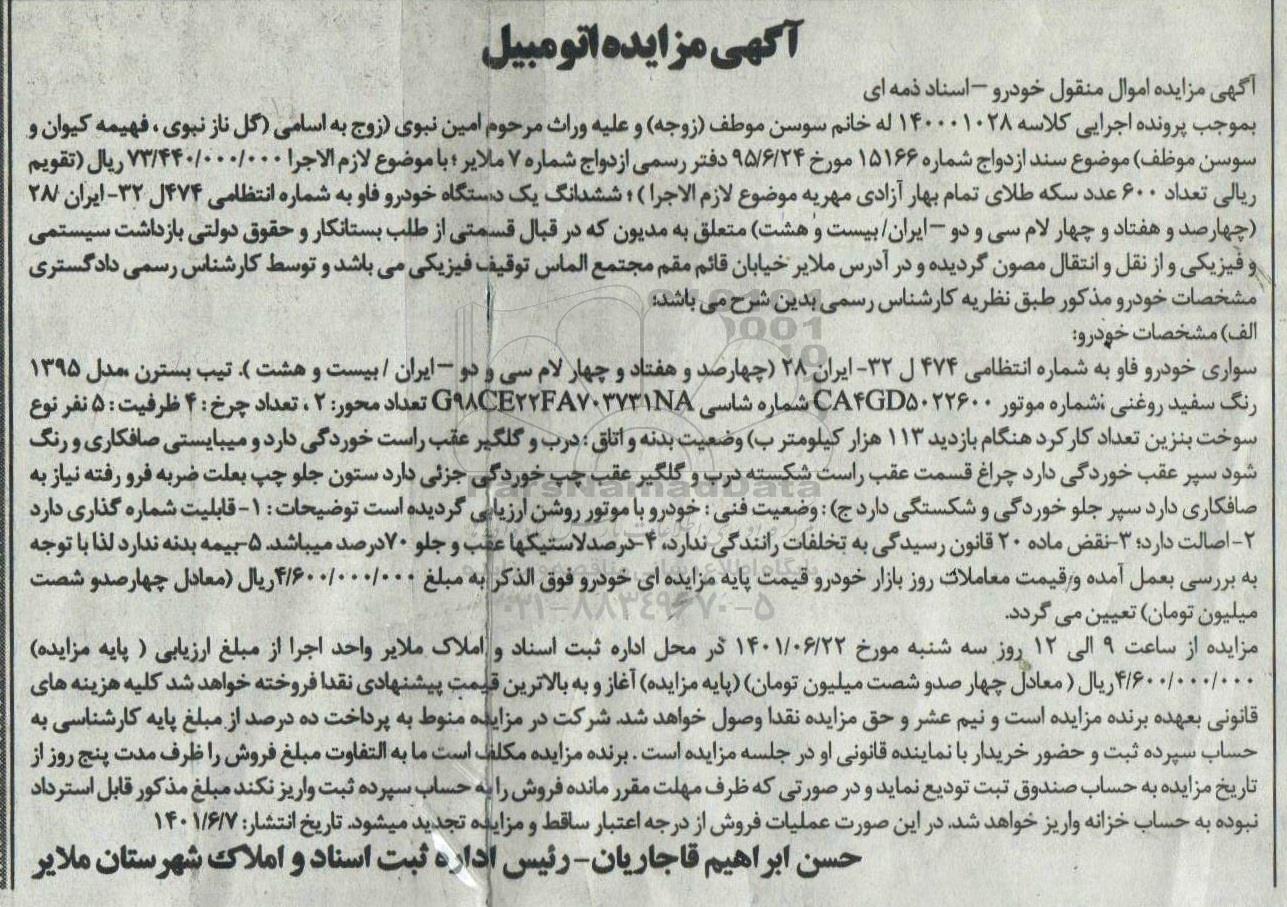 آگهی مزایده اتومبیل
آگهی مزایده اموال منقول خودرو –اسناد ذمه ای
بموجب پرونده اجرایی کلاسه ۱۴۰۰۰۱۰۲۸ له خانم سوسن موظف (زوجه) و علیه وراث مرحوم امین نبوی (زوج به اسامی (گل ناز نبوی ، فهیمه کیوان و
سوسن موظف) موضوع سند ازدواج شماره ۱۵۱۶۶ مورخ ۹۵/۶/۲۴ دفتر رسمی ازدواج شماره ۷ ملایر ؛ با موضوع لازم الاجرا ۷۳/۴۴۰/۰۰۰/۰۰۰ ریال (تقویم
ریالی تعداد ۶۰۰ عدد سکه طلای تمام بهار آزادی مهریه موضوع لازم الاجرا ) ؛ ششدانگ یک دستگاه خودرو فاو به شماره انتظامی ۴۷۴ل ۳۲- ایران /۲۸
(چهارصد و هفتاد و چهار لام سی و دو –ایران/ بیست و هشت) متعلق به مدیون که در قبال قسمتی از طلب بستانکار و حقوق دولتی بازداشت سیستمی
و فیزیکی و از نقل و انتقال مصون گردیده و در آدرس ملایر خیابان قائم مقم مجتمع الماس توقیف فیزیکی می باشد و توسط کارشناس رسمی دادگستری
مشخصات خودرو مذکور طبق نظریه کارشناس رسمی بدین شرح می باشد:
الف) مشخصات خودرو:
سواری خودرو فاو به شماره انتظامی ۴۷۴ ل ۳۲- ایران ۲۸ (چهارصد و هفتاد و چهار لام سی و دو –ایران / بیست و هشت ). تیپ بسترن ،مدل ۱۳۹۵
رنگ سفید روغنی ؛شماره موتور CA۴GD۵۰۲۲۶۰۰ شماره شاسی G۹۸CE۲۲FA۷۰۳۷۳۱NA تعداد محور: ۲ ، تعداد چرخ : ۴ ظرفیت : ۵ نفر نوع
سوخت بنزین تعداد کارکرد هنگام بازدید ۱۱۳ هزار کیلومتر ب) وضعیت بدنه و اتاق : درب و گلگیر عقب راست خوردگی دارد و میبایستی صافکاری و رنگ
شود سپر عقب خوردگی دارد چراغ قسمت عقب راست شکسته درب و گلگیر عقب چپ خوردگی جزئی دارد ستون جلو چپ بعلت ضربه فرو رفته نیاز به
صافکاری دارد سپر جلو خوردگی و شکستگی دارد ج) : وضعیت فنی : خودرو با موتور روشن ارزیابی گردیده است توضیحات : ۱- قابلیت شماره گذاری دارد
۲- اصالت دارد؛ ۳-نقض ماده ۲۰ قانون رسیدگی به تخلفات رانندگی ندارد، ۴-درصدلاستیکها عقب و جلو ۷۰درصد میباشد. ۵-بیمه بدنه ندارد لذا با توجه
به بررسی بعمل آمده و قیمت معاملات روز بازار خودرو قیمت پایه مزایده ای خودرو فوق الذکر به مبلغ ۴/۶۰۰/۰۰۰/۰۰۰ریال (معادل چهارصدو شصت
میلیون تومان) تعیین می گردد.
مزایده از ساعت ۹ الی ۱۲ روز سه شنبه مورخ ۱۴۰۱/۰۶/۲۲ در محل اداره ثبت اسناد و املاک ملایر واحد اجرا از مبلغ ارزیابی ( پایه مزایده)
۴/۶۰۰/۰۰۰/۰۰۰ریال ( معادل چهار صدو شصت میلیون تومان) (پایه مزایده) آغاز و به بالاترین قیمت پیشنهادی نقدا فروخته خواهد شد کلیه هزینه های
قانونی بعهده برنده مزایده است و نیم عشر و حق مزایده نقدا وصول خواهد شد. شرکت در مزایده منوط به پرداخت ده درصد از مبلغ پایه کارشناسی به
حساب سپرده ثبت و حضور خریدار با نماینده قانونی او در جلسه مزایده است . برنده مزایده مکلف است ما به التفاوت مبلغ فروش را ظرف مدت پنج روز از
تاریخ مزایده به حساب صندوق ثبت تودیع نماید و در صورتی که ظرف مهلت مقرر مانده فروش را به حساب سپرده ثبت واریز نکند مبلغ مذکور قابل استرداد
نبوده به حساب خزانه واریز خواهد شد. در این صورت عملیات فروش از درجه اعتبار ساقط و مزایده تجدید میشود. تاریخ انتشار: ۱۴۰۱/۶/۷
حسن ابراهیم قاجاریان- رئیس اداره ثبت اسناد و املاک شهرستان ملایر
ParsNamadData
۰۲۱-۸۸۳۴۹۶۷۰-۵